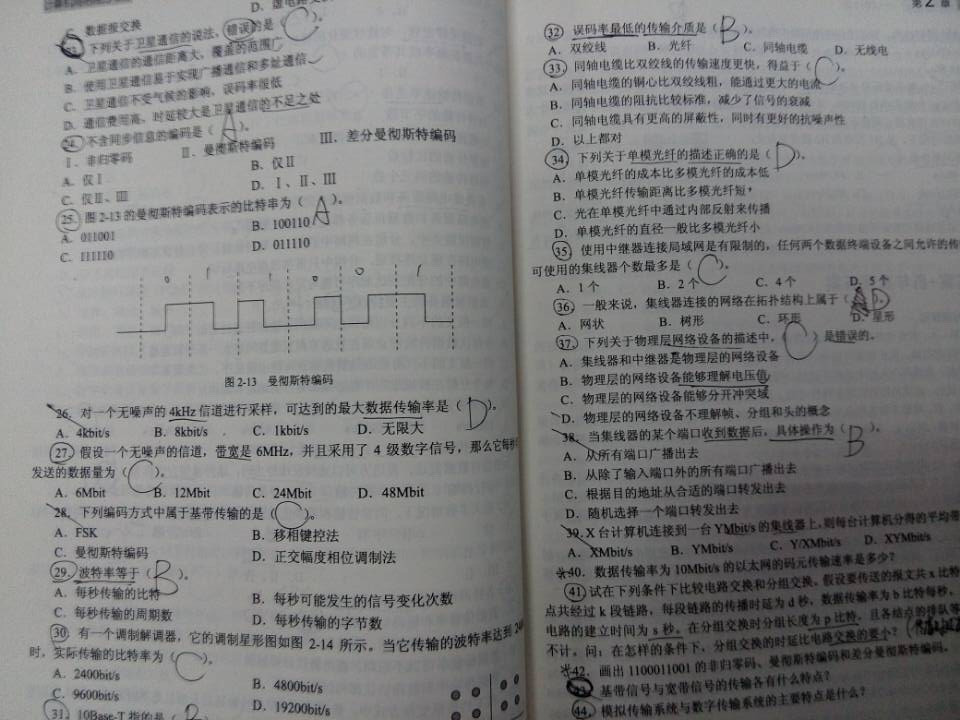 C. 数据报交换
23. 下列关于卫星通信的说法,错误的是( C )。
A. 卫星通信的通信距离大,覆盖的范围广
B. 使用卫星通信易于实现广播通信和多址通信
C. 卫星通信不受气候的影响,误码率很低
D. 通信费用高,时延较大是卫星通信的不足之处
24. 不含同步信息的编码是( A )。
Ⅰ. 非归零码 Ⅱ. 曼彻斯特编码 Ⅲ. 差分曼彻斯特编码
A. 仅Ⅰ B. 仅Ⅱ
C. 仅Ⅱ、Ⅲ D. Ⅰ、Ⅱ、Ⅲ
25. 图 2-13 的曼彻斯特编码表示的比特串为( A )。
A. 011001 B. 100110
C. 111110 D. 011110
0 1 1 0 0 1
图 2-13 曼彻斯特编码
26. 对一个无噪声的 4kHz 信道进行采样,可达到的最大数据传输率是( D )。
A. 4kbit/s B. 8kbit/s C. 1kbit/s D. 无限大
27. 假设一个无噪声的信道,带宽是 6MHz,并且采用了 4 级数字信号,那么它每秒
发送的数据量为( C )。
A. 6Mbit B. 12Mbit C. 24Mbit D. 48Mbit
28. 下列编码方式中属于基带传输的是( C )。
A. FSK B. 移相键控法
C. 曼彻斯特编码 D. 正交幅度相位调制法
29. 波特率等于( B )。
A. 每秒传输的比特 B. 每秒可能发生的信号变化次数
C. 每秒传输的周期数 D. 每秒传输的字节数
30. 有一个调制解调器,它的调制星形图如图 2-14 所示。当它传输的波特率达到 24
时,实际传输的比特率为( C )。
A. 2400bit/s B. 4800bit/s
C. 9600bit/s D. 19200bit/s
31. 10Base-T 指的是( B
第 2 章
32. 误码率最低的传输介质是( B )。
A. 双绞线 B. 光纤 C. 同轴电缆 D. 无线电
33. 同轴电缆比双绞线的传输速度更快,得益于( C )。
A. 同轴电缆的铜心比双绞线粗,能通过更大的电流
B. 同轴电缆的阻抗比较标准,减少了信号的衰减
C. 同轴电缆具有更高的屏蔽性,同时有更好的抗噪声性
D. 以上都对
34. 下列关于单模光纤的描述正确的是( D )。
A. 单模光纤的成本比多模光纤的成本低
B. 单模光纤传输距离比多模光纤短
C. 光在单模光纤中通过内部反射来传播
D. 单模光纤的直径一般比多模光纤小
35. 使用中继器连接局域网是有限制的,任何两个数据终端设备之间允许的传
可使用的集线器个数最多是( C )。
A. 1 个 B. 2 个 C. 4 个 D. 5 个
36. 一般来说,集线器连接的网络在拓扑结构上属于( D )。
A. 网状 B. 树形 C. 环形 D. 星形
37. 下列关于物理层网络设备的描述中,( C )是错误的。
A. 集线器和中继器是物理层的网络设备
B. 物理层的网络设备能够理解电压值
C. 物理层的网络设备能够分开冲突域
D. 物理层的网络设备不理解帧、分组和头的概念
38. 当集线器的某个端口收到数据后,具体操作为( B )。
A. 从所有端口广播出去
B. 从除了输入端口外的所有端口广播出去
C. 根据目的地址从合适的端口转发出去
D. 随机选择一个端口转发出去
39. X 台计算机连接到一台 YMbit/s 的集线器上,则每台计算机分得的平均带
A. XMbit/s B. YMbit/s C. Y/XMbit/s D. XYMbit/s
*40. 数据传输率为 10Mbit/s 的以太网的码元传输速率是多少?
41. 试在下列条件下比较电路交换和分组交换。假设要传送的报文共 x 比特
点共经过 k 段链路,每段链路的传播时延为 d 秒,数据传输率为 b 比特每秒,
电路的建立时间为 s 秒。在分组交换时分组长度为 p 比特,且各结点的排队等
不计。问,在怎样的条件下,分组交换的时延比电路交换的要小?
*42. 画出 1100011001 的非归零码、曼彻斯特编码和差分曼彻斯特编码。
43. 基带信号与宽带信号的传输各有什么特点?
44. 模拟传输系统与数字传输系统的主要特点是什么?